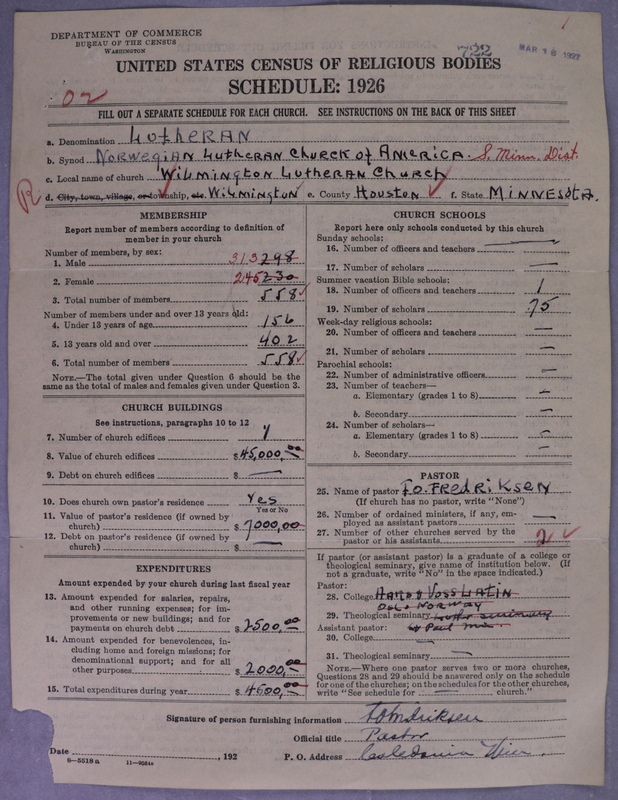 DEPARTMENT OF COMMERCE
BUREAU OF THE CENSUS
WASHINGTON
722
MAR 18 1927
1
UNITED STATES CENSUS OF RELIGIOUS BODIES
SCHEDULE: 1926
02
FILL OUT A SEPARATE SCHEDULE FOR EACH CHURCH. SEE INSTRUCTIONS ON THE BACK OF THIS SHEET
a. Denomination LUTHERAN
b. Synod NORWEGIAN LUTHERAN CHURCH OF AMERICA. S. Minn. Dist.
c. Local name of church WILMINGTON LUTHERAN CHURCH
R d. City, town, village, or township, etc. WILMINGTON e. County HOUSTON f. State MINNESOTA.
MEMBERSHIP
Report number of members according to definition of
member in your church
Number of members, by sex:
1. Male 313 298
2. Female 245 230
3. Total number of members 558
Number of members under and over 13 years old:
4. Under 13 years of age 156
5. 13 years old and over 402
6. Total number of members 558
NOTE.—The total given under Question 6 should be the
same as the total of males and females given under Question 3.
CHURCH BUILDINGS
See instructions, paragraphs 10 to 12
7. Number of church edifices 1
8. Value of church edifices $45,000,00
9. Debt on church edifices $ —
10. Does church own pastor's residence Yes
Yes or No
11. Value of pastor's residence (if owned by
church) $ 7000,00
12. Debt on pastor's residence (if owned by
church) $ —
EXPENDITURES
Amount expended by your church during last fiscal year
13. Amount expended for salaries, repairs,
and other running expenses; for im-
provements or new buildings; and for
payments on church debt $ 2500,00
14. Amount expended for benevolences, in-
cluding home and foreign missions; for
denominational support; and for all
other purposes $ 2000,00
15. Total expenditures during year $ 4500,00
CHURCH SCHOOLS
Report here only schools conducted by this church
Sunday schools:
16. Number of officers and teachers —
17. Number of scholars —
Summer vacation Bible schools:
18. Number of officers and teachers 1
19. Number of scholars 75
Week-day religious schools:
20. Number of officers and teachers —
21. Number of scholars —
Parochial schools:
22. Number of administrative officers —
23. Number of teachers—
a. Elementary (grades 1 to 8) —
b. Secondary —
24. Number of scholars—
a. Elementary (grades 1 to 8) —
b. Secondary —
PASTOR
25. Name of pastor FREDRIKSEN
(If church has no pastor, write "None")
26. Number of ordained ministers, if any, em-
ployed as assistant pastors —
27. Number of other churches served by the
pastor or his assistants 2
If pastor (or assistant pastor) is a graduate of a college or
theological seminary, give name of institution below. (If
not a graduate, write "No" in the space indicated.)
Pastor:
28. College VOSS LATIN
OSLO NORWAY
29. Theological seminary Luther seminary
Assistant pastor: St Paul Min.
30. College —
31. Theological seminary —
NOTE.—Where one pastor serves two or more churches,
Questions 28 and 29 should be answered only on the schedule
for one of the churches; on the schedules for the other churches,
write "See schedule for — church."
Signature of person furnishing information
Official title Pastor
Date , 192 P. O. Address Caledonia Minn.
8—5518 a 11—9564